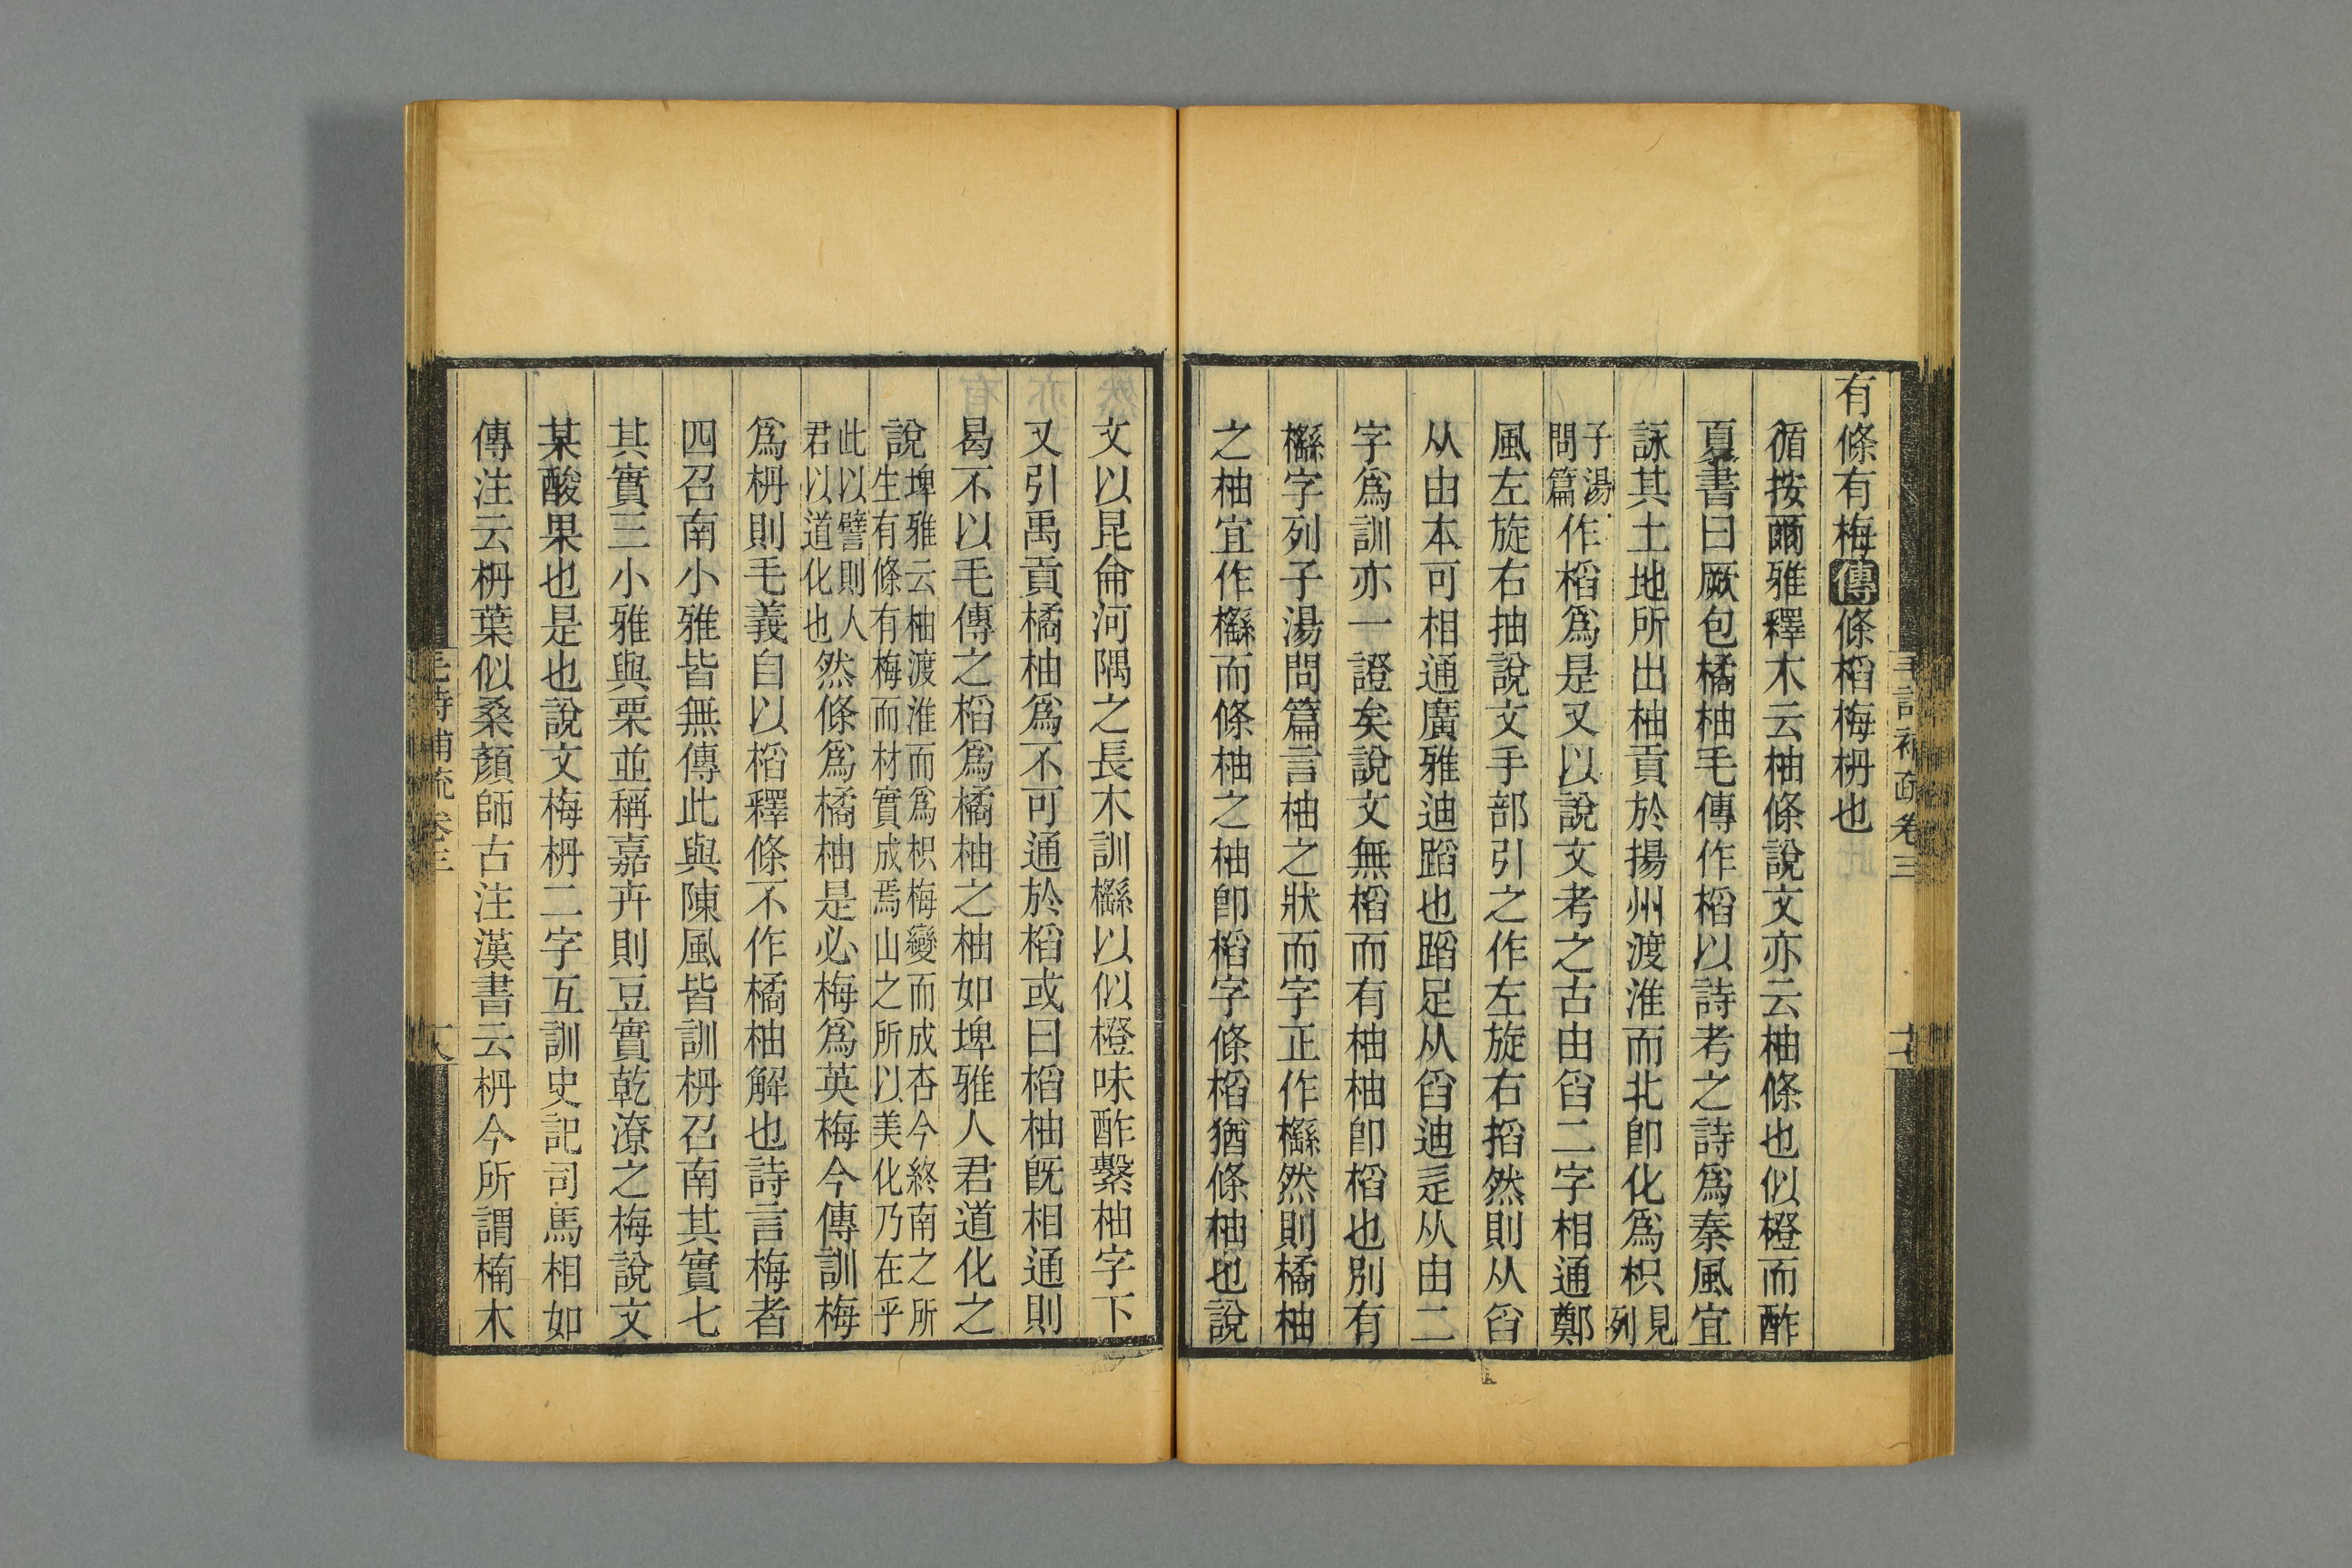 有條有梅傳條稻梅枏也
循按爾雅釋木云柚條說文亦云柚條也似橙而酢
夏書曰厥包橘柚毛傳作稻以詩考之詩爲秦風宜
詠其土地所出柚貢於揚州渡淮而北卽化爲枳見列
子湯問篇作槄爲是又以說文考之古由舀二字相通鄭
風左旋右抽說文手部引之作左旋右搯然則从舀
从由本可相通廣雅迪蹈也蹈足从舀迪辵从由二
字爲訓亦一證矣說文無槄而有柚柚卽槄也別有
櫾字列子湯問篇言柚之狀而字正作櫾然則橘柚
之柚宜作櫾而條柚之柚卽槄字條槄猶條柚也說
文以昆侖河隅之長木訓櫾以似橙味酢繫柚字下
又引禹貢橘柚爲不可通於槄或曰槄柚旣相通則
曷不以毛傳之槄爲橘柚之柚如埤雅人君道化之
說埤雅云柚渡淮而爲枳梅變而成杏今終南之所生有條有梅而材實成焉山之所以美化乃在乎
此以譬則人君以道化也然條爲橘柚是必梅爲英梅今傳訓梅
爲枏則毛義自以槄釋條不作橘柚解也詩言梅者
四召南小雅皆無傳此與陳風皆訓枏召南其實七
其實三小雅與栗並稱嘉卉則豆實乾䕩之梅說文
某酸果也是也說文梅枏二字互訓史記司馬相如
傳注云枏葉似桑顏師古注漢書云枏今所謂楠木
毛詩補疏卷三